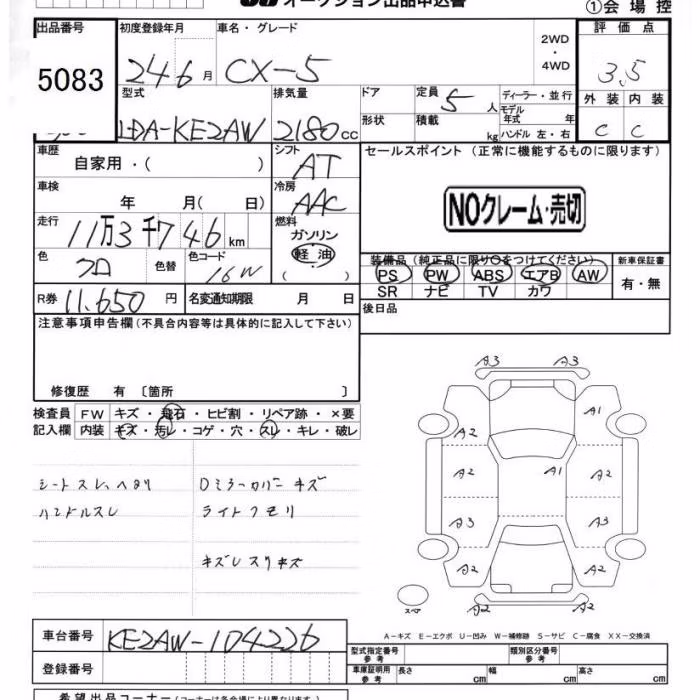 オークション出品申込書
①会場控
出品番号
5083
初度登録年月
24 6月
車名・グレード
CX-5
2WD
・
4WD
評価点
3.5
外装 内装
C C
型式
LDA-KE2AW
排気量
2180cc
ドア
形状
定員 5人
積載 kg
ディーラー・並行
モデル年式 年
ハンドル 左・右
車歴
自家用・( )
シフト
AT
セールスポイント (正常に機能するものに限ります)
NOクレーム・売切
車検
年 月( 日)
冷房
AAC
走行
11万3千746km
燃料
ガソリン
軽油
( )
色
クロ
色替
色コード
16W
装備品 (純正品に限り○をつけてください)
PS PW ABS エアB AW
SR ナビ TV カワ
新車保証書
有・無
R券 11,650円
名変通知期限 月 日
後日品
注意事項申告欄(不具合内容等は具体的に記入して下さい)
修復歴 有〔箇所 〕
検査員
記入欄
FW キズ・飛石・ヒビ割・リペア跡・×要
内装 キズ・汚レ・コゲ・穴・スレ・キレ・破レ
シートスレ、ヘタリ
ハンドルスレ
Dミラーカバーキズ
ライトクモリ
キズレスリキズ
A3 A3
A1
A2
A2 A1 A2
A3 A3
A2 A2
A2 A2
スペア
A-キズ E-エクボ U-凹み W-補修跡 S-サビ C-腐食 XX-交換済
車台番号 KE2AW-104226
登録番号
型式指定番号
参考
類別区分番号
参考
車庫証明用
参考
長さ cm 幅 cm 高さ cm
希望出品コーナー(コーナーは各会場により異なります)